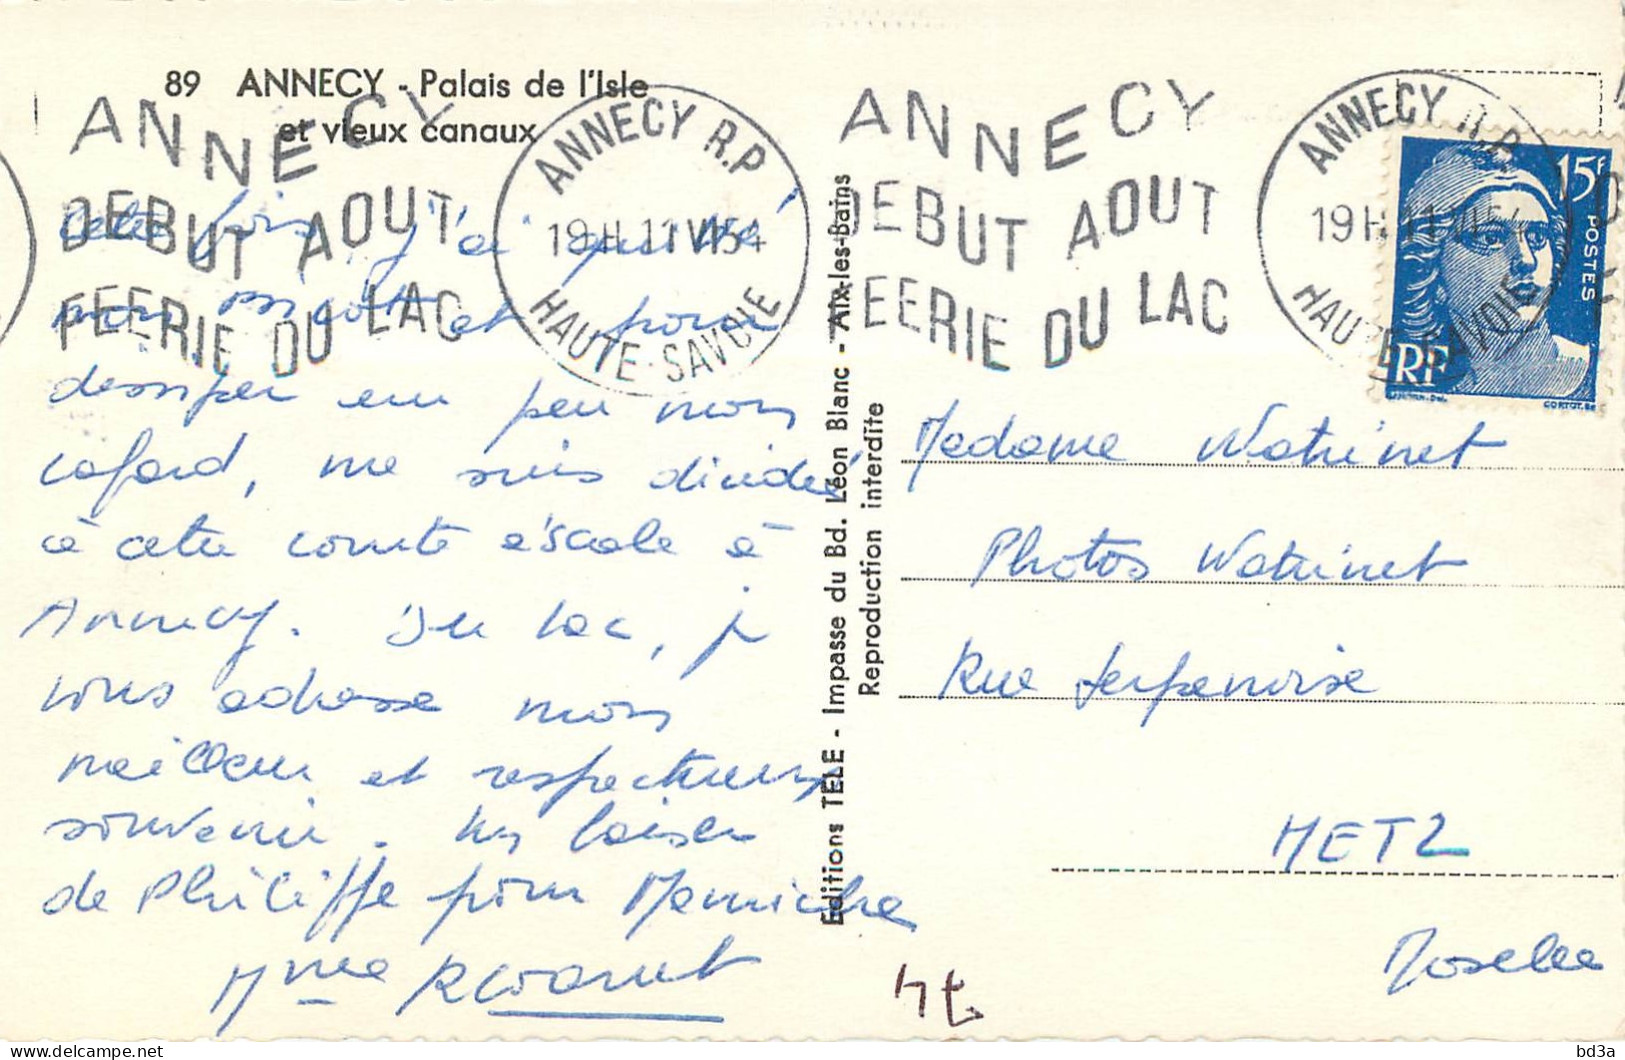 89 ANNECY - Palais de l'Isle
et vieux canaux
ANNECY
DEBUT AOUT
FEERIE DU LAC
ANNECY R.P.
19H 11 VI 54
HAUTE-SAVOIE
ANNECY
DEBUT AOUT
FEERIE DU LAC
ANNECY R.P.
19H 11 VI 54
HAUTE-SAVOIE
15F
POSTES
RF
cette fois, j'ai quitté
mon et pour
dissiper un peu mon
cafard, me suis décidée
à cette courte escale à
Annecy. Du lac, je
vous adresse mon
meilleur et respectueux
souvenir. Un baiser
de Philippe pour Mamiche
Mme
Editions TELE - Impasse du Bd. Léon Blanc - Aix-les-Bains
Reproduction interdite
Madame Watrinet
Photos Watrinet
Rue Serpenoise
METZ
Moselle
bd3a